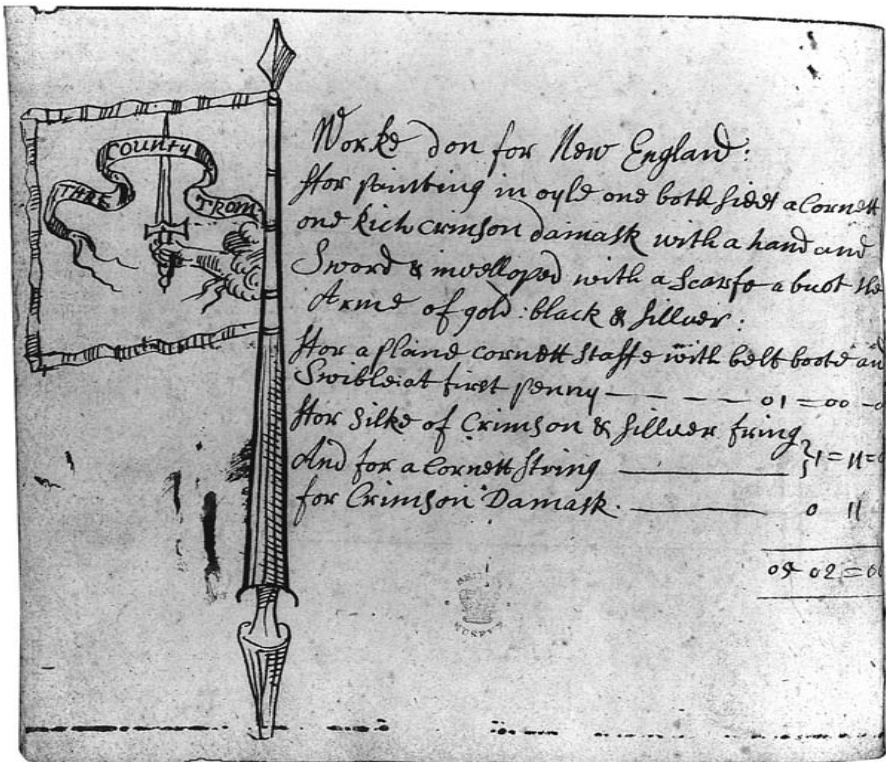 THRE COUNTY TROM
Worke don for New England:
ffor painting in oyle one both sides a Cornett
one Rich crimson damask with a hand and
Sword & invelloped with a Scarfe a buot the
Arme of gold: black & sillver:
ffor a plaine cornett Staffe with belt boote an
Swible: at first penny — — — — 01 = 00 –
ffor Silke of Crimson & sillver fring
And for a Cornett String ——— 1 = 11 =
for Crimson Damask. ——— 0 11
05 02 = 0